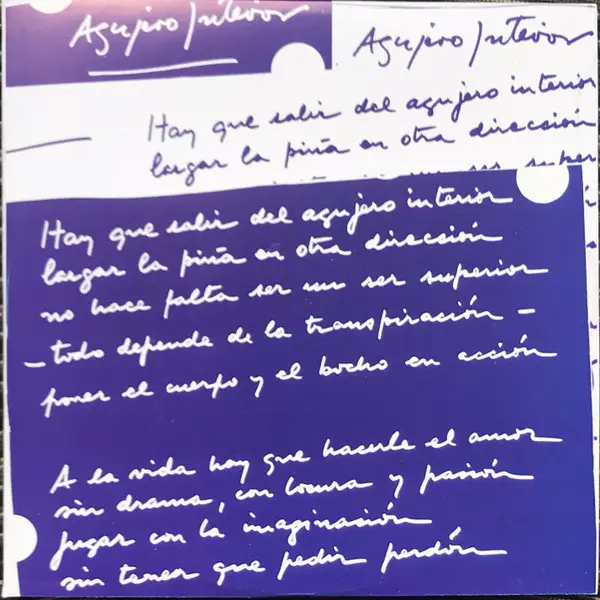 Agujero Interior
Agujero Interior
Hay que salir del agujero interior
largar la piña en otra dirección
Hay que salir del agujero interior
largar la piña en otra dirección
no hace falta ser un ser superior
– todo depende de la transpiración –
poner el cuerpo y el bocho en acción
A la vida hay que hacerle el amor
sin drama, con locura y pasión
jugar con la imaginación
sin tener que pedir perdón